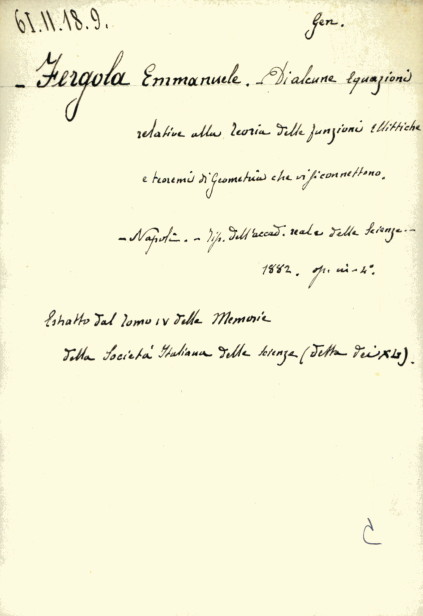 61.II.18.9.
Gen.
- Fergola Emmanuele. - Di alcune equazioni
relative alla teoria delle funzioni ellittiche
e teoremi di Geometria che vi si connettono.
- Napoli. - Tip. dell'accad. reale delle scienze -
1882. op. in-4°.
Estratto dal tomo IV delle Memorie
della Società Italiana delle scienze (detta dei XL).